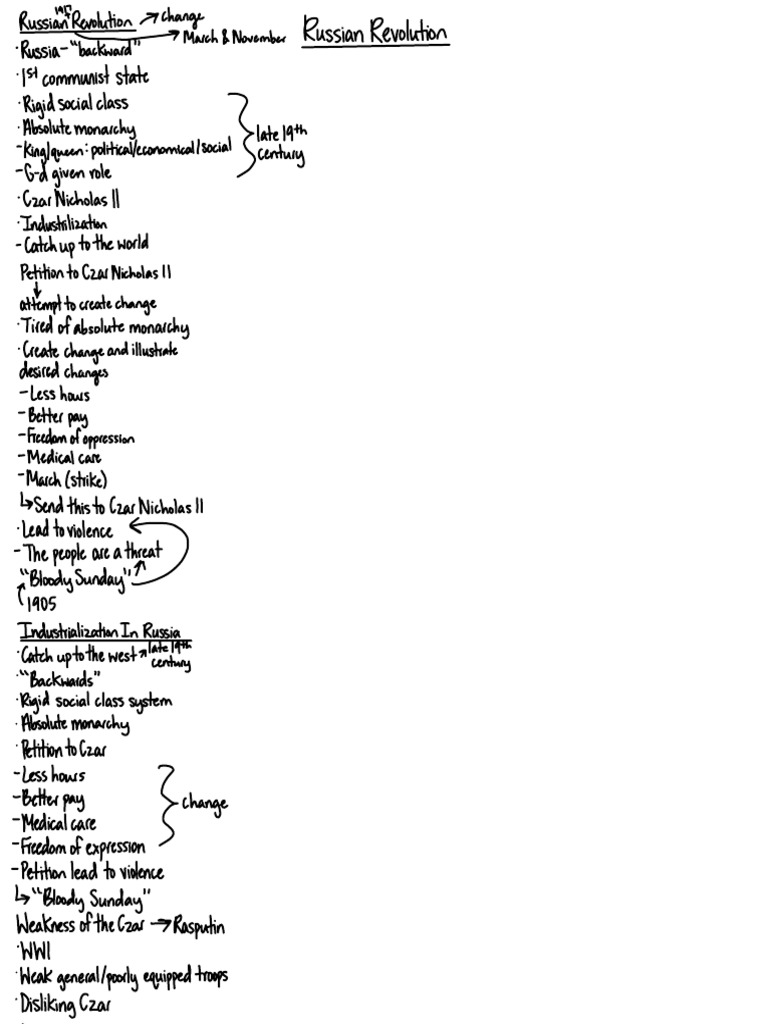 Russian Revolution
1917
Russian Revolution → change
→ March & November
·Russia-"backward"
·1st communist state
·Rigid social class
·Absolute monarchy
-King/queen: political/economical/social
-G-d given role
late 19th
century
·Czar Nicholas II
·Industrilization
-Catch up to the world
Petition to Czar Nicholas II
↓
attempt to create change
·Tired of absolute monarchy
·Create change and illustrate
desired changes
-Less hours
-Better pay
-Freedom of oppression
-Medical care
-March (strike)
↳Send this to Czar Nicholas II
·Lead to violence
-The people are a threat
"Bloody Sunday"
1905
Industrialization In Russia
·Catch up to the west → late 19th
century
·"Backwards"
·Rigid social class system
·Absolute monarchy
·Petition to Czar
-Less hours
-Better pay
-Medical care
-Freedom of expression
change
-Petition lead to violence
↳"Bloody Sunday"
Weakness of the Czar → Rasputin
·WWI
·Weak general/poorly equipped troops
·Disliking Czar